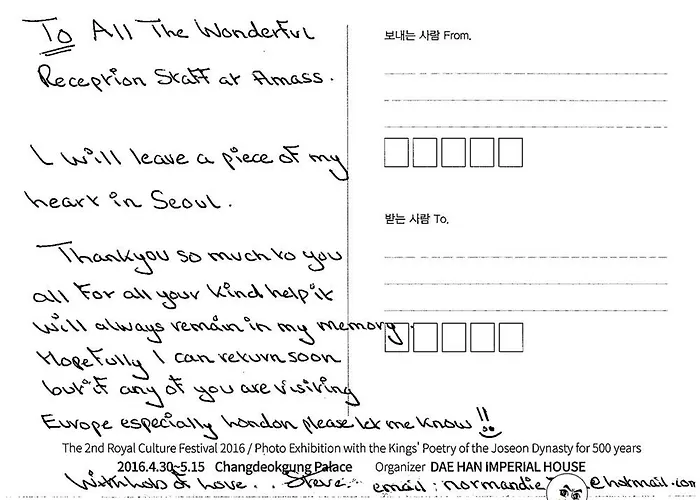 To All The Wonderful
Reception Staff at Amass.
I will leave a piece of my
heart in Seoul.
Thankyou so much to you
all for all your kind help it
will always remain in my memory.
Hopefully I can return soon
but if any of you are visiting
Europe especially London please let me know !!
With lots of love... Steve..
email : normandie @hotmail.com
보내는 사람 From.
받는 사람 To.
The 2nd Royal Culture Festival 2016 / Photo Exhibition with the Kings' Poetry of the Joseon Dynasty for 500 years
2016.4.30~5.15 Changdeokgung Palace Organizer DAE HAN IMPERIAL HOUSE